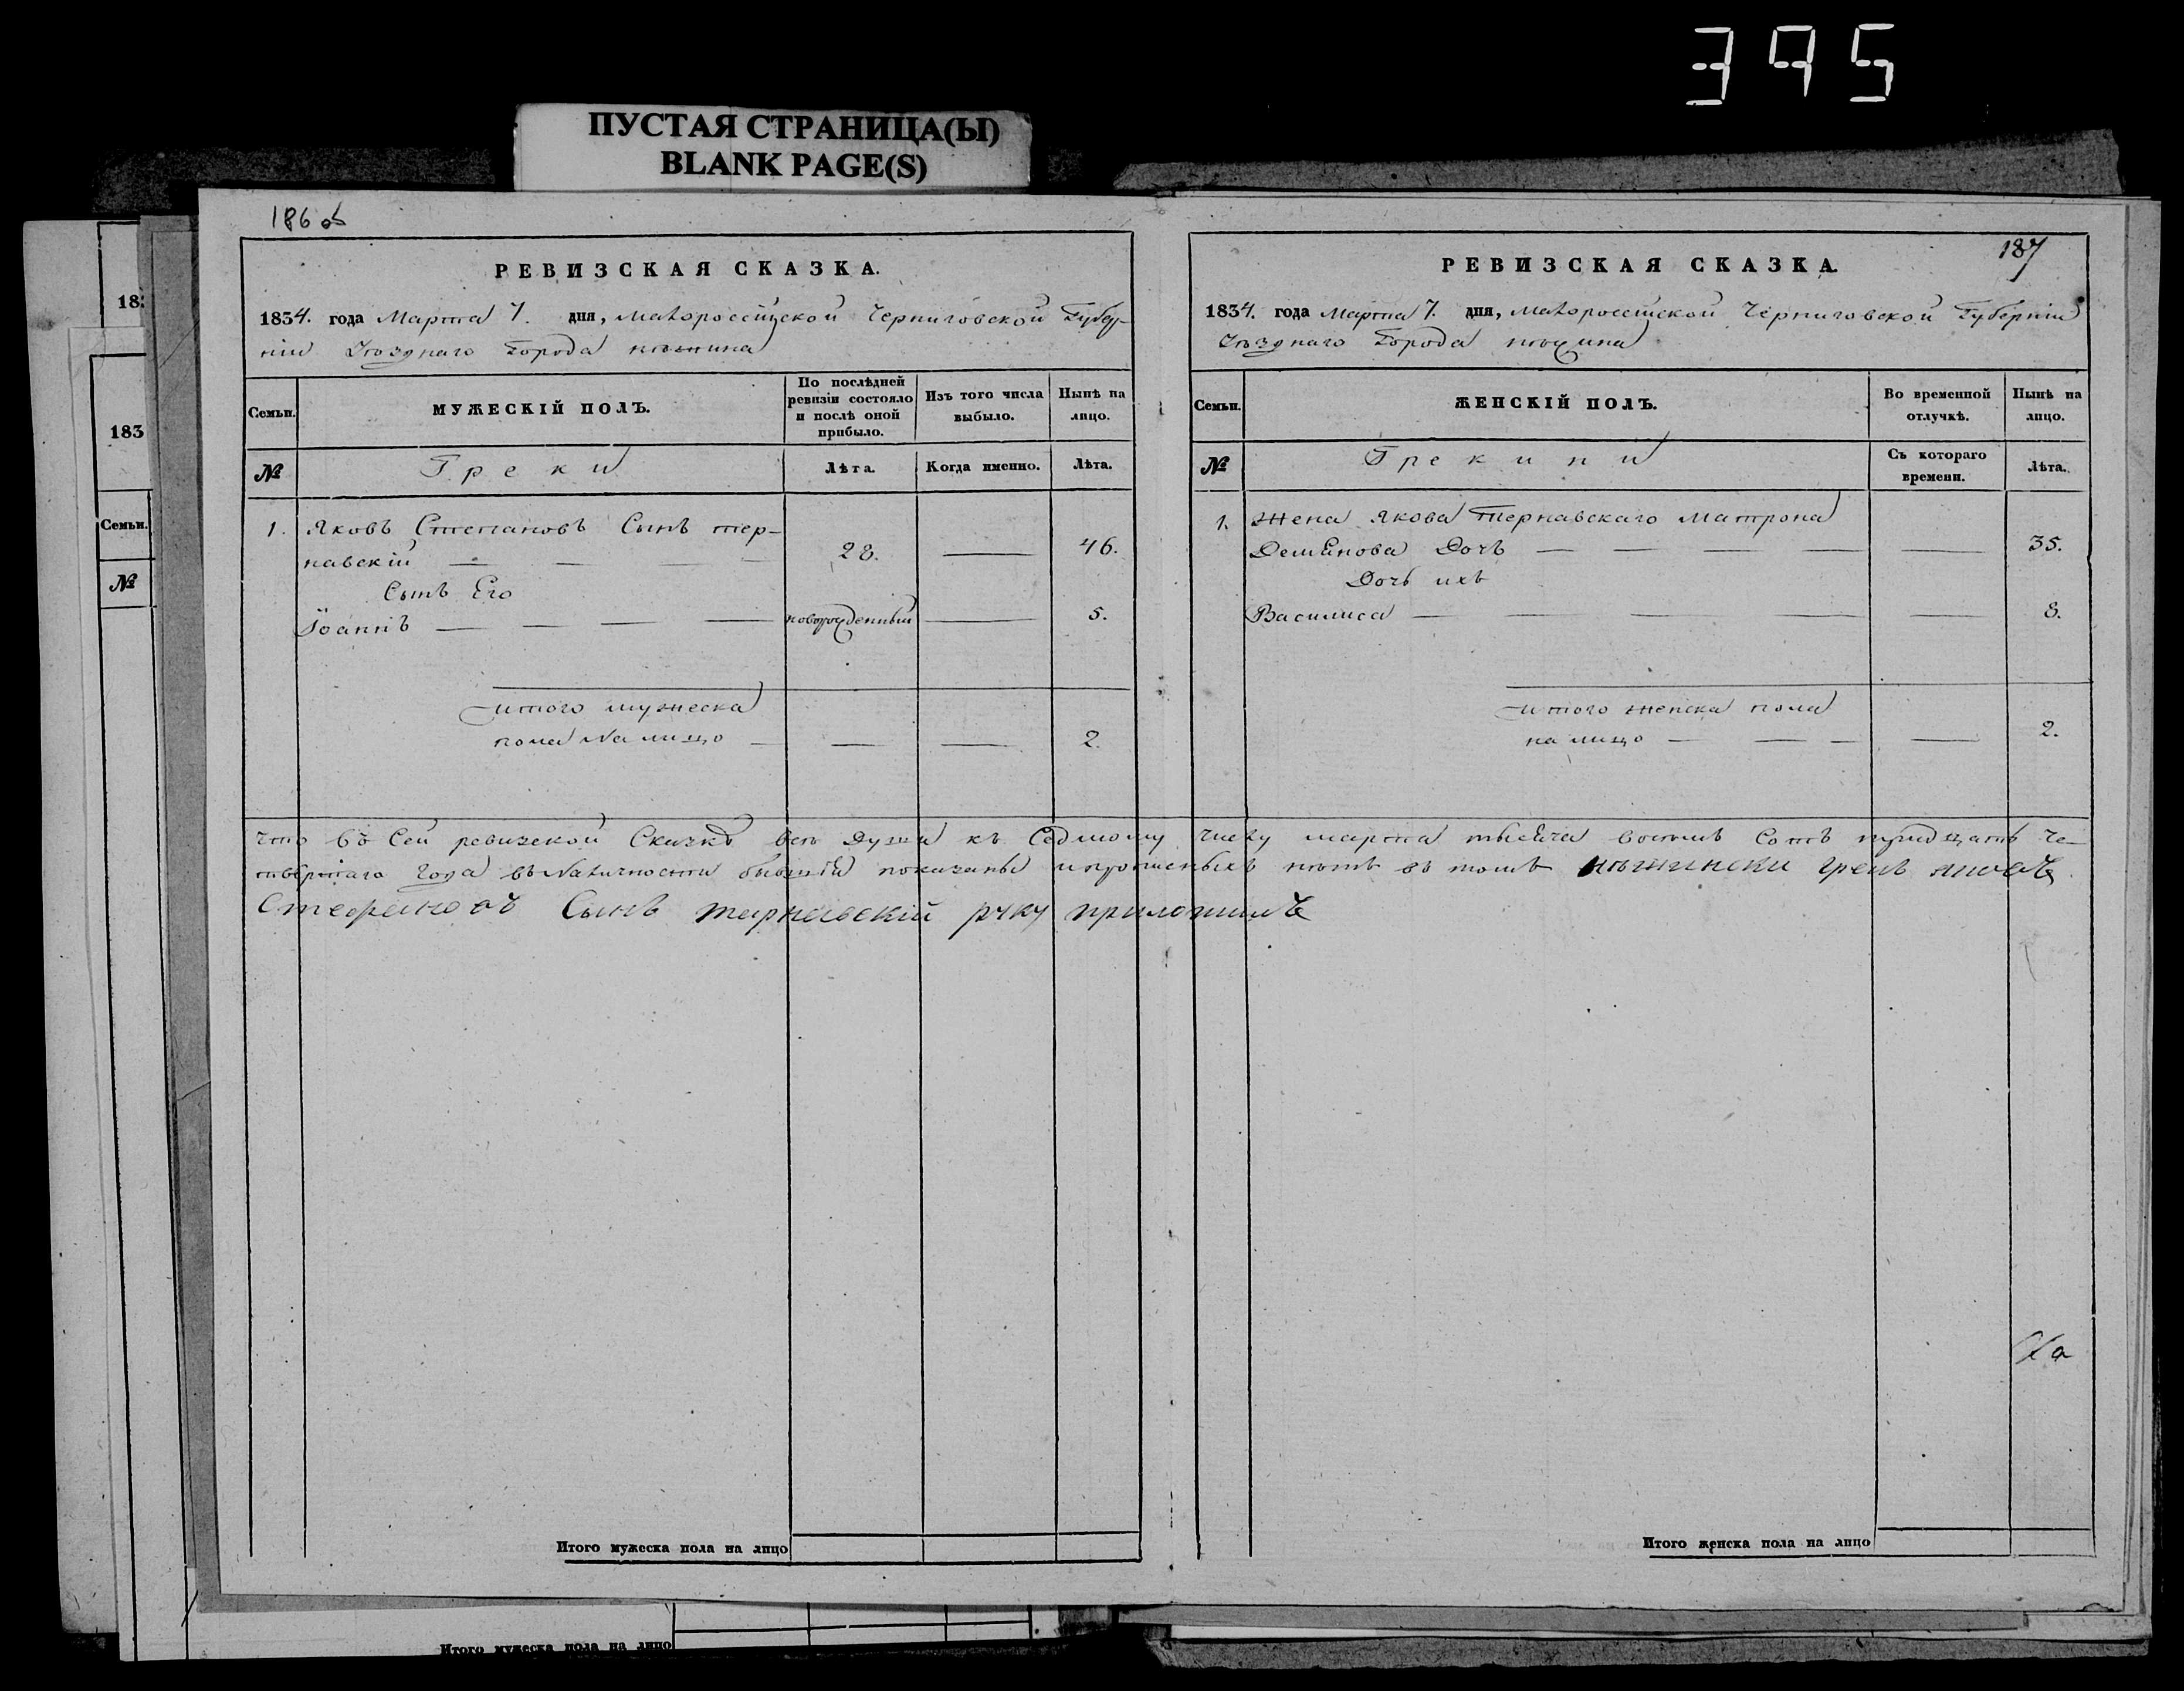 395
ПУСТАЯ СТРАНИЦА(Ы)
BLANK PAGE(S)
183
183
Семьи.
№
186 об
РЕВИЗСКАЯ СКАЗКА.
1834. года Марта 7. дня, Малороссійской Черниговской Губер-
ніи Уѣзднаго Города нѣжина
Семьи.
МУЖЕСКІЙ ПОЛЪ.
По послѣдней ревизіи состояло и послѣ оной прибыло.
Изъ того числа выбыло.
Нынѣ на лицо.
№
Греки
Лѣта.
Когда именно.
Лѣта.
1. Яковъ Степановъ Сынъ тер-
навскій — — — — 28. — 46.
Сынъ Его
Іоаннъ — — — — новорожденный — 5.
итого мужеска
пола На лицо — — — 2.
187
РЕВИЗСКАЯ СКАЗКА.
1834. года Марта 7. дня, Малороссійской Черниговской Губерніи
Уѣзднаго Города нѣжина
Семьи.
ЖЕНСКІЙ ПОЛЪ.
Во временной отлучкѣ.
Нынѣ на лицо.
№
Грекини
Съ котораго времени.
Лѣта.
1. Жена Якова Тернавскаго Матрона
Демьянова Дочь — — — — — 35.
Дочь ихъ
Василиса — — — — — 8.
итого женска пола
на лицо — — — — 2.
что въ Сей ревизской Сказкѣ всѣ Души къ Седмому числу марта тысяча восемь Сотъ тридцать че-
твертаго года въ Наличности бывшія показаны и прописныхъ нѣтъ въ томъ нѣжински грекъ яковъ
Стефановъ Сынъ тернавскій руку приложилъ
Итого мужеска пола на лицо
Итого женска пола на лицо
Итого мужеска пола на лицо